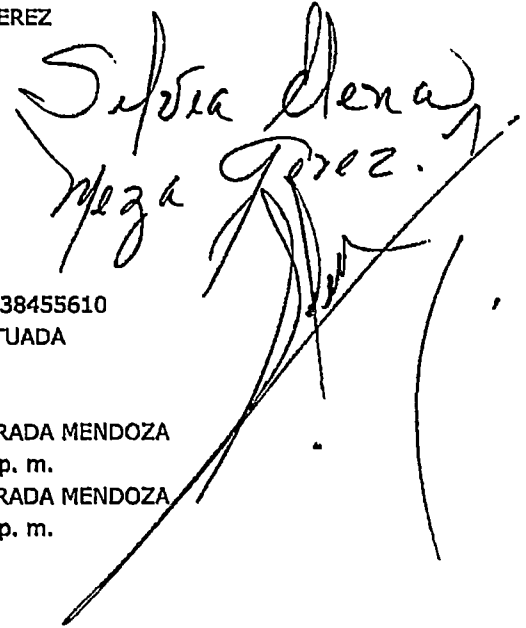 EREZ
Silvia Elena
Meza Perez.
38455610
TUADA
RADA MENDOZA
p. m.
RADA MENDOZA
p. m.